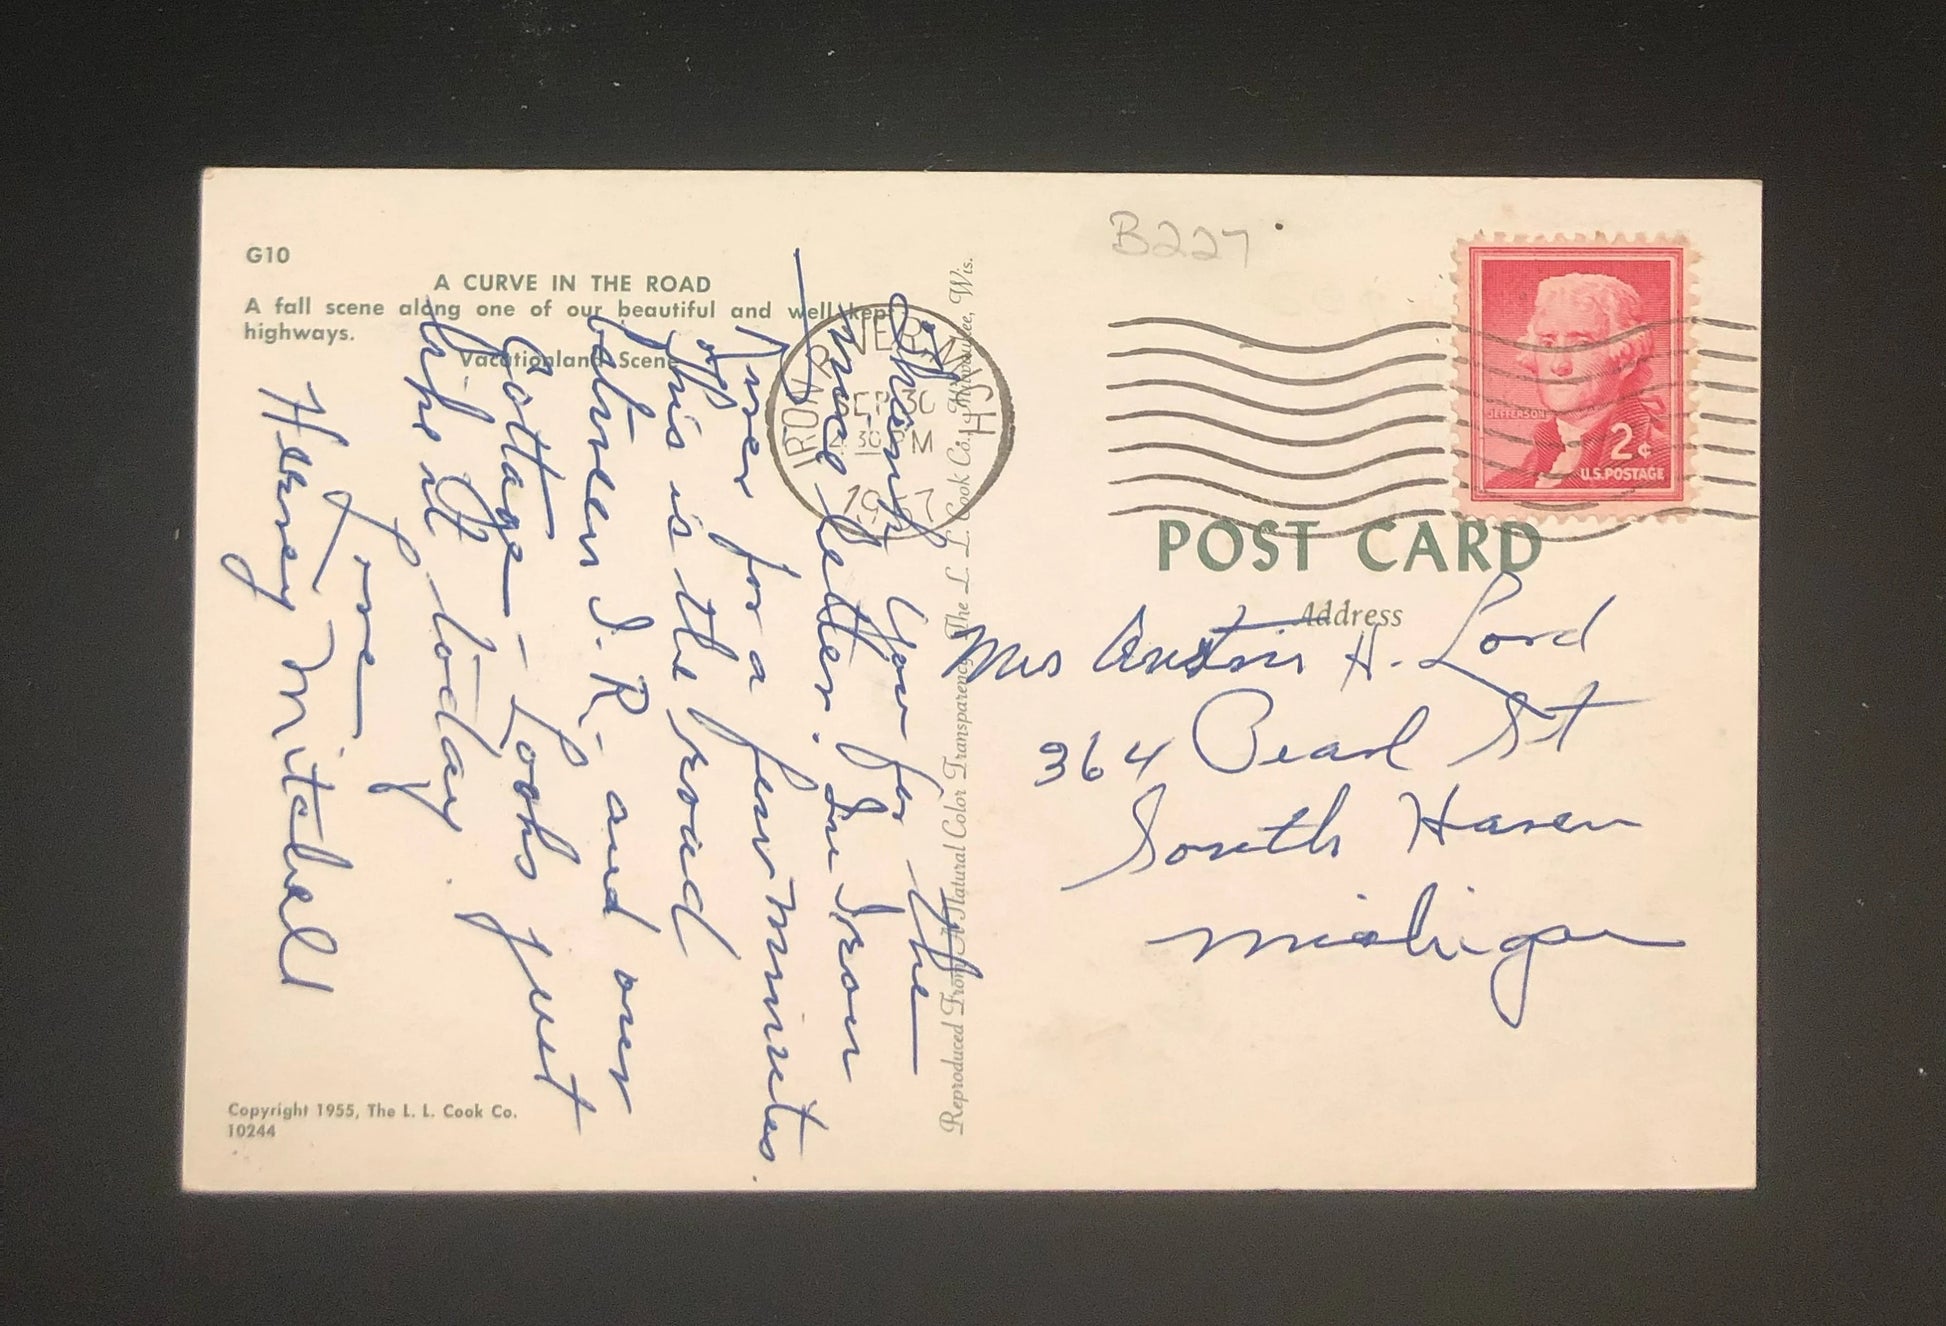 G10
A CURVE IN THE ROAD
A fall scene along one of our beautiful and well kept
highways.
Vacationland Scene
Thank you for the
fine letter. In Iron
River for a few minutes.
This is the road
between I.R. and our
cottage – Looks just
like it today.
Love
Henry Mitchell
Copyright 1955, The L. L. Cook Co.
10244
Reproduced From A Natural Color Transparency The L. L. Cook Co., Milwaukee, Wis.
IRON RIVER MICH
SEP 30
4 30 PM
1957
B227
JEFFERSON
2¢
U.S. POSTAGE
POST CARD
Address
Mrs Austin H. Lord
364 Pearl St
South Haven
Michigan